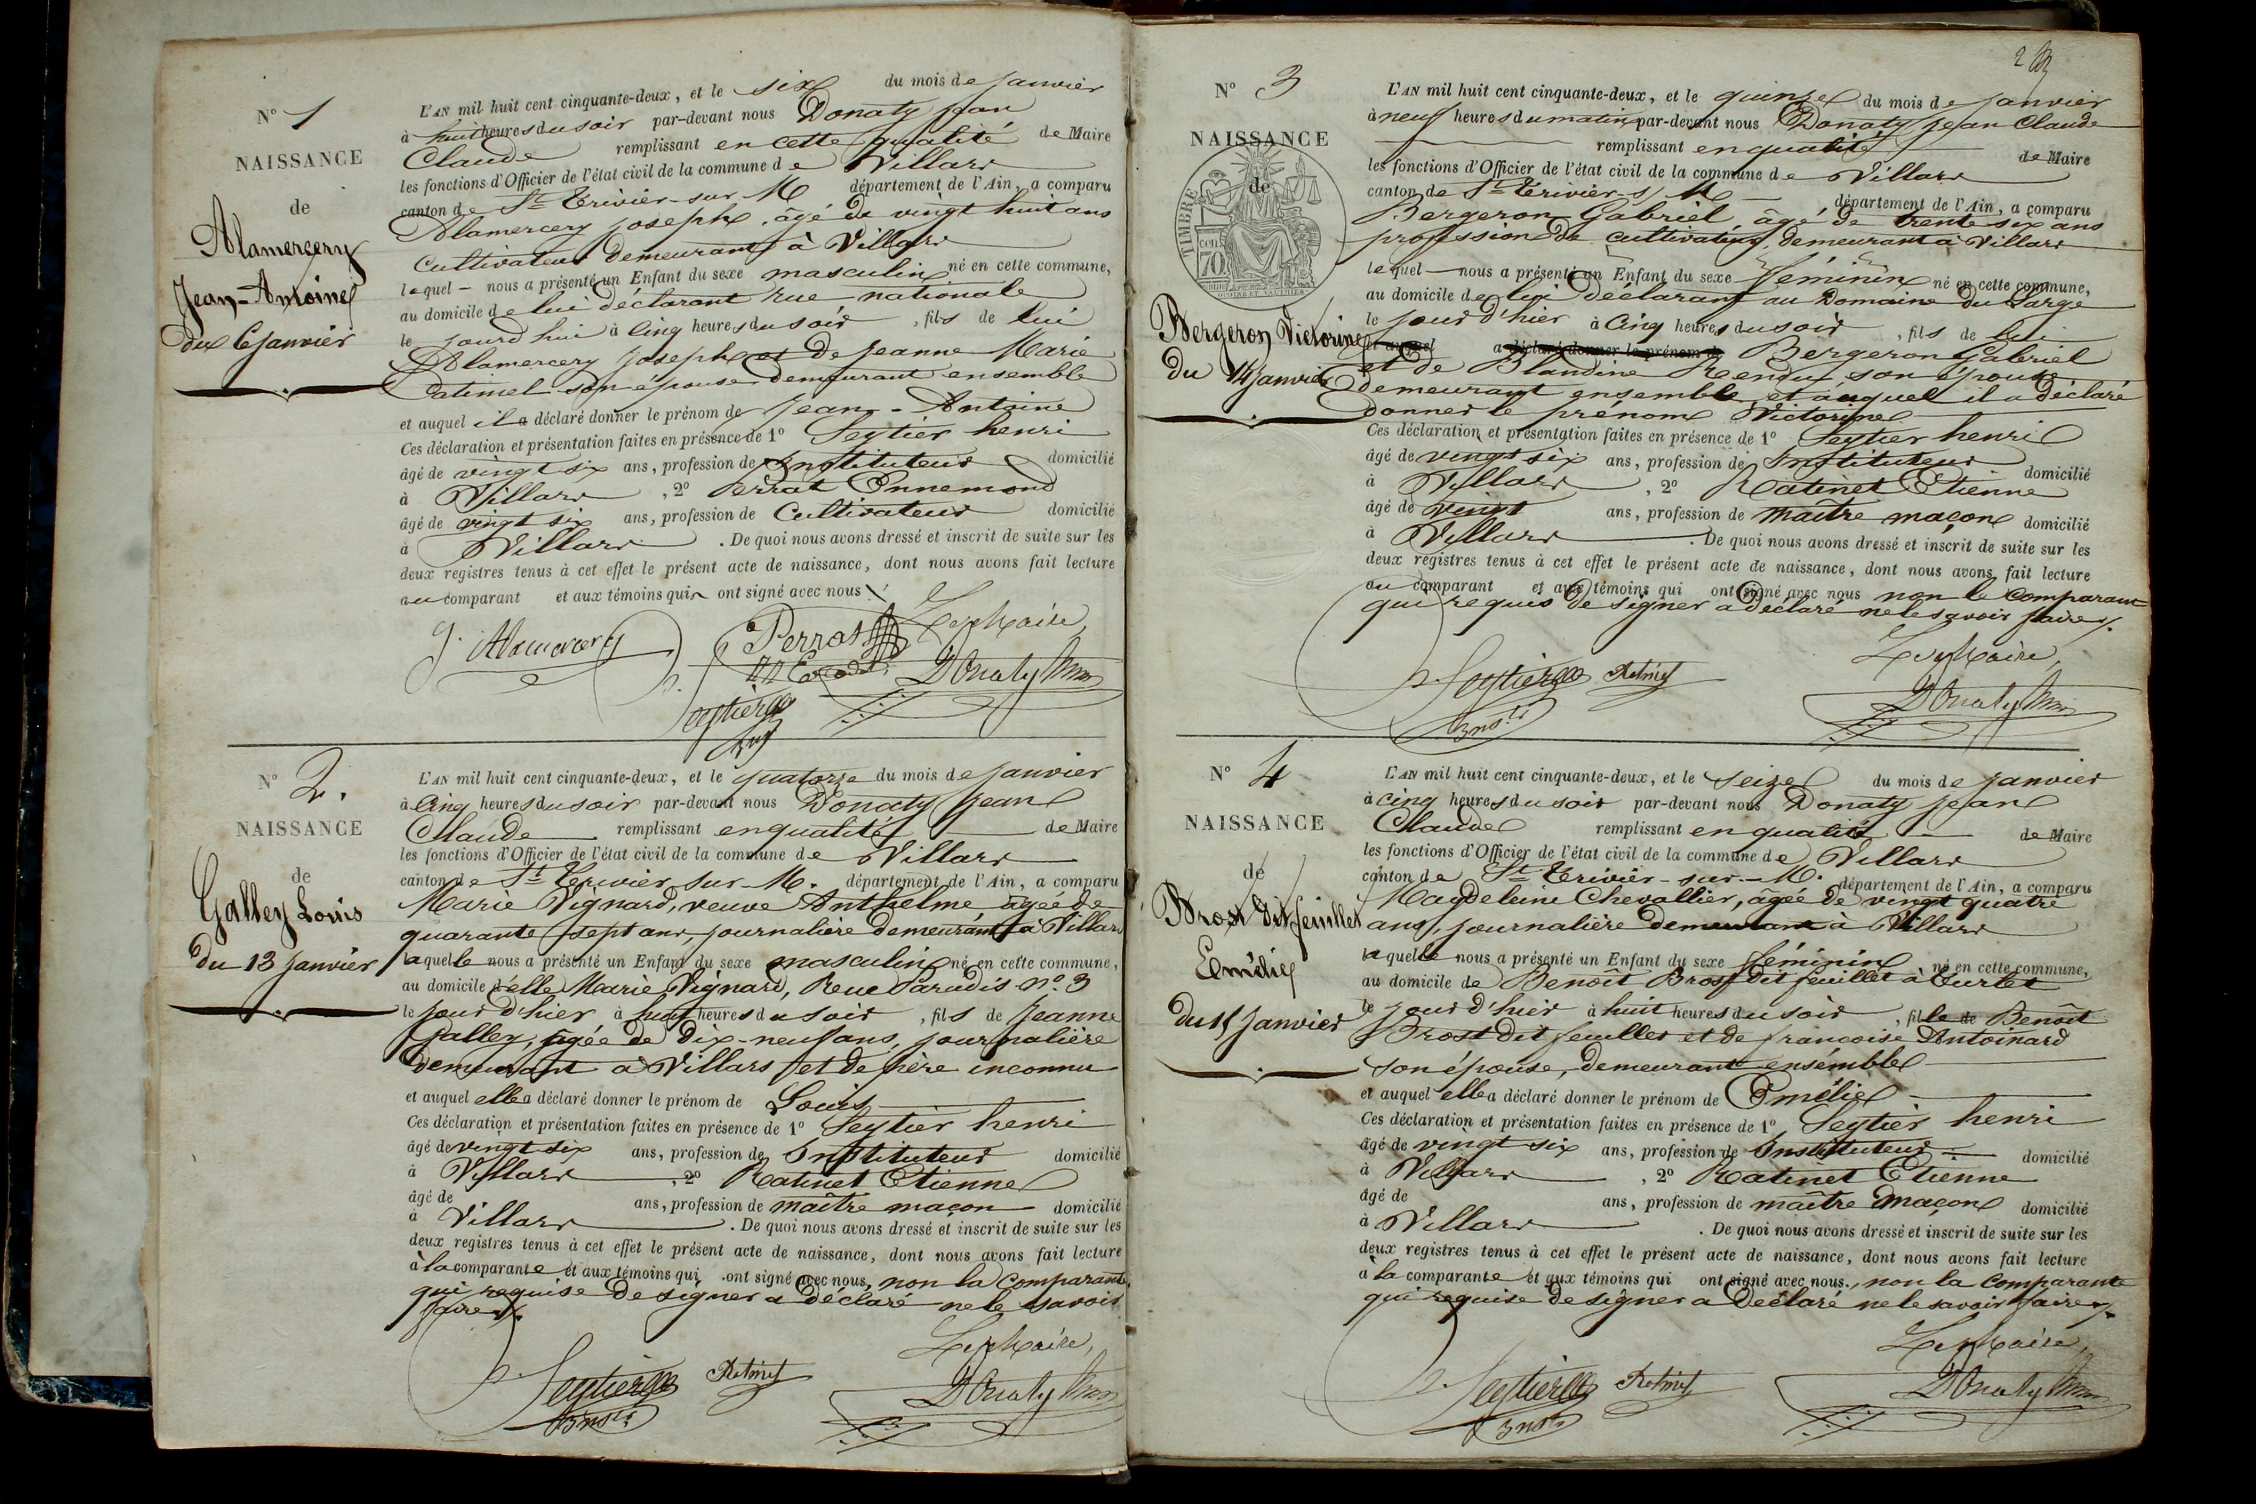 N° 1
NAISSANCE
de
Alamercery
Jean-Antoine
du 6 janvier
L'AN mil huit cent cinquante-deux, et le six du mois de janvier
à huit heures du soir par-devant nous Donaty jean
Claude remplissant en cette qualité de Maire
les fonctions d'Officier de l'état civil de la commune de Villars
canton de St Trivier-sur-M département de l'Ain, a comparu
Alamercery joseph, âgé de vingt huit ans
Cultivateur demeurant à Villars
lequel nous a présenté un Enfant du sexe masculin né en cette commune,
au domicile de lui déclarant rue nationale
le jourd'hui à Cinq heures du soir, fils de lui
Alamercery joseph et de jeanne Marie
son épouse demeurant ensemble
et auquel il a déclaré donner le prénom de jean-Antoine
Ces déclaration et présentation faites en présence de 1° Seytier henri
âgé de vingt six ans, profession de Instituteur domicilié
à Villars, 2° Perrat Ennemond
âgé de vingt six ans, profession de Cultivateur domicilié
à Villars. De quoi nous avons dressé et inscrit de suite sur les
deux registres tenus à cet effet le présent acte de naissance, dont nous avons fait lecture
au comparant et aux témoins qui ont signé avec nous
J. Alamercery Perrat Le Maire,
Seytier Donaty
N° 2.
NAISSANCE
de
Galley Louis
du 13 janvier
L'AN mil huit cent cinquante-deux, et le quatorze du mois de janvier
à Cinq heures du soir par-devant nous Donaty jean
Claude remplissant en qualité de Maire
les fonctions d'Officier de l'état civil de la commune de Villars
canton de St Trivier sur-M. département de l'Ain, a comparu
Marie Vignard, veuve Anthelme âgée de
quarante sept ans, journalière demeurant à Villars
laquelle nous a présenté un Enfant du sexe masculin né en cette commune,
au domicile d'elle Marie Vignard, Rue Paradis n° 3
le jour d'hier à huit heures du soir, fils de jeanne
Galley, âgée de Dix-neuf ans, journalière
demeurant à Villars et de père inconnu
et auquel elle a déclaré donner le prénom de Louis
Ces déclaration et présentation faites en présence de 1° Seytier henri
âgé de vingt six ans, profession de Instituteur domicilié
à Villars, 2° Ratinet Etienne
âgé de ans, profession de maître maçon domicilié
à Villars. De quoi nous avons dressé et inscrit de suite sur les
deux registres tenus à cet effet le présent acte de naissance, dont nous avons fait lecture
à la comparante et aux témoins qui ont signé avec nous, non la Comparante
qui requise de signer a déclaré ne le savoir
faire
Le Maire,
Seytier Ratinet Donaty
N° 3
NAISSANCE
de
TIMBRE
70
Bergeron Victorine
du 14 janvier
L'AN mil huit cent cinquante-deux, et le quinze du mois de janvier
à neuf heures du matin par-devant nous Donaty jean Claude
remplissant en qualité de Maire
les fonctions d'Officier de l'état civil de la commune de Villars
canton de St Trivier-s/M département de l'Ain, a comparu
Bergeron Gabriel, âgé de trente six ans
profession de cultivateur, demeurant à Villars
lequel nous a présenté un Enfant du sexe féminin né en cette commune,
au domicile de lui déclarant au Domaine du
le jour d'hier à Cinq heures du soir, fils de lui
et auquel a déclaré donner le prénom de Bergeron Gabriel
et de Blandine son épouse
demeurant ensemble, et auquel il a déclaré
donner le prénom Victorine
Ces déclaration et présentation faites en présence de 1° Seytier henri
âgé de vingt six ans, profession de Instituteur domicilié
à Villars, 2° Ratinet Etienne
âgé de vingt ans, profession de maître maçon domicilié
à Villars. De quoi nous avons dressé et inscrit de suite sur les
deux registres tenus à cet effet le présent acte de naissance, dont nous avons fait lecture
au comparant et aux témoins qui ont signé avec nous non le comparant
qui requis de signer a déclaré ne le savoir faire
Le Maire,
Seytier Ratinet Donaty
N° 4
NAISSANCE
de
Brost dit feuillet
Emélie
du 15 janvier
L'AN mil huit cent cinquante-deux, et le seize du mois de janvier
à cinq heures du soir par-devant nous Donaty jean
Claude remplissant en qualité de Maire
les fonctions d'Officier de l'état civil de la commune de Villars
canton de St Trivier-sur-M. département de l'Ain, a comparu
Magdeleine Chevallier, âgée de vingt quatre
ans, journalière demeurant à Villars
laquelle nous a présenté un Enfant du sexe féminin né en cette commune,
au domicile de Benoît Brost dit feuillet à Curtet
le jour d'hier à huit heures du soir, fille de Benoît
Brost dit feuillet et de françoise Antoinard
son épouse, demeurant ensemble
et auquel elle a déclaré donner le prénom de Emélie
Ces déclaration et présentation faites en présence de 1° Seytier henri
âgé de vingt six ans, profession de Instituteur domicilié
à Villars, 2° Ratinet Etienne
âgé de ans, profession de maître maçon domicilié
à Villars. De quoi nous avons dressé et inscrit de suite sur les
deux registres tenus à cet effet le présent acte de naissance, dont nous avons fait lecture
à la comparante et aux témoins qui ont signé avec nous, non la Comparante
qui requise de signer a déclaré ne le savoir faire
Le Maire,
Seytier Ratinet Donaty